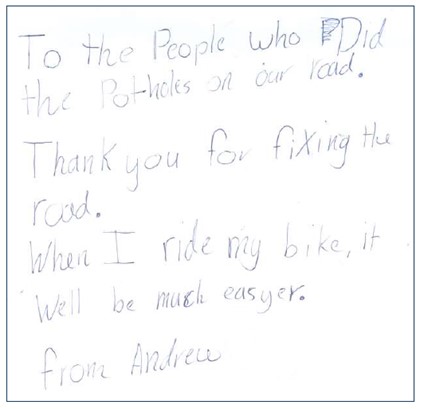 To the People who Did
the Potholes on our road.
Thank you for fixing the
road.
When I ride my bike, it
Well be much easyer.
from Andrew